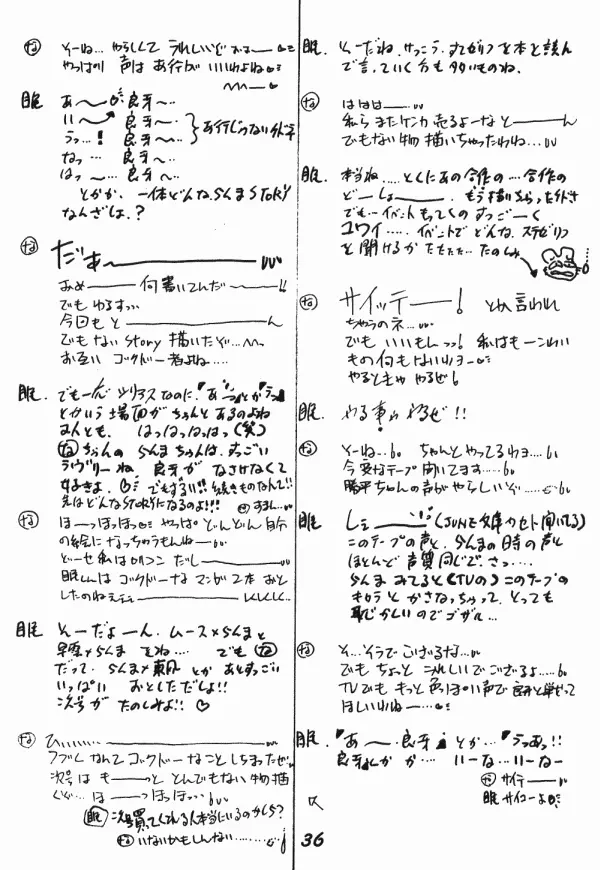 な そーね… やらしくて うれしいけど おぉー
やっぱり 声は あ行が いいわよね
眠 あ〜 良牙〜‥
い〜 良牙〜‥
うっ…! 良牙〜‥
なっ… 良牙〜‥
はっ〜… 良牙〜‥
あ行じゃない
とかか、一体どんならんまSTORY
なんざしょ.?
な だぁー
おめー 何書いてんだー!!
でも ゆるすっ‥
今回も とーーーん
でもない story 描いたぞ…
お互い ゴクドー者よね‥‥
眠. でも一応 シリアスなのに、『あっ』とか『うっ』
とかいう場面が ちゃんと あるのよね
みんとも. はっはっはっはっ(笑)
なちゃんの らんまちゃんは、すっごい
ラヴリーね、良牙が なさけなくて
好きよ. ♡ でもずるい!! 続きものなんて!!
先はどんなSTORYになるのよ!!!
な すまし…
な ほーっほっほっ やっぱ どんどん 自分
の絵に なっちゃうもんねー
どーせ 私は ロリコン だしー
眠くんは ゴクドーな マンガ 2本 おと
したのねぇぇぇ
眠 そーだよーん. ムース×らんまと
早雲×らんま でね…. でも な
だって. らんま×東風 とか あとすっごい
いっぱい おとしただしょ!!
次号が たのしみよ!! ♡
な ひぃ‥‥‥
フフン なんて ゴクドーなこと しちまったぜ
次号は もーっと とんでもない 物描
くぞ… ほーっほっほっ…
眠 次号買ってくれる人本当にいるのかしら?
な いないかもしんない………
眠. そーだね. けっこう. すてゼリフを本と読ん
で言っていく方も多いものね.
な ははは—…
私ら またケンカ売るよーな とーーん
でもない物 描いちゃったわね…
眠. 本当ね….. とくにあの合作の… 合作の
どーしょー. もう描いちゃった
でも… イベントもってくの すっごーく
コワイ….. イベントで どんな. ステゼリフ
を 聞けるか たもたた… たのしみ
な サイッテーー! とか 言われ
ちゃうのネ…
でも いいもんっっ! 私はもーこわい
もの何もないわヨー
やるときゃ やるぜ!
眠. やる事ゎ やるぜ!!
な そーね… ちゃんと やってるわヨ….
今 変なテープ 聞いてます….
勝平ちゃんの声がやらしいぞ…..
眠 しぇーー(JUNE文庫カセット聞いてる)
このテープの声と、らんまの時の声と
ほとんど 声質同じで、さっ….
らんま みてると(TVの)このテープの
キャラと かさなっちゃって、とっても
恥ずかしいのでゴザル…
な そ…そうで ござるな…
でも ちょっと うれしいでござるよ….
TVでも もっと 色っぽい声で 良牙と
ほしいわねー…
眠. 『あ〜. 良牙』とか…『うっあっ!!
良牙』とか か…. いーな…いーなー
な サイテー
眠 サイコーよ
36